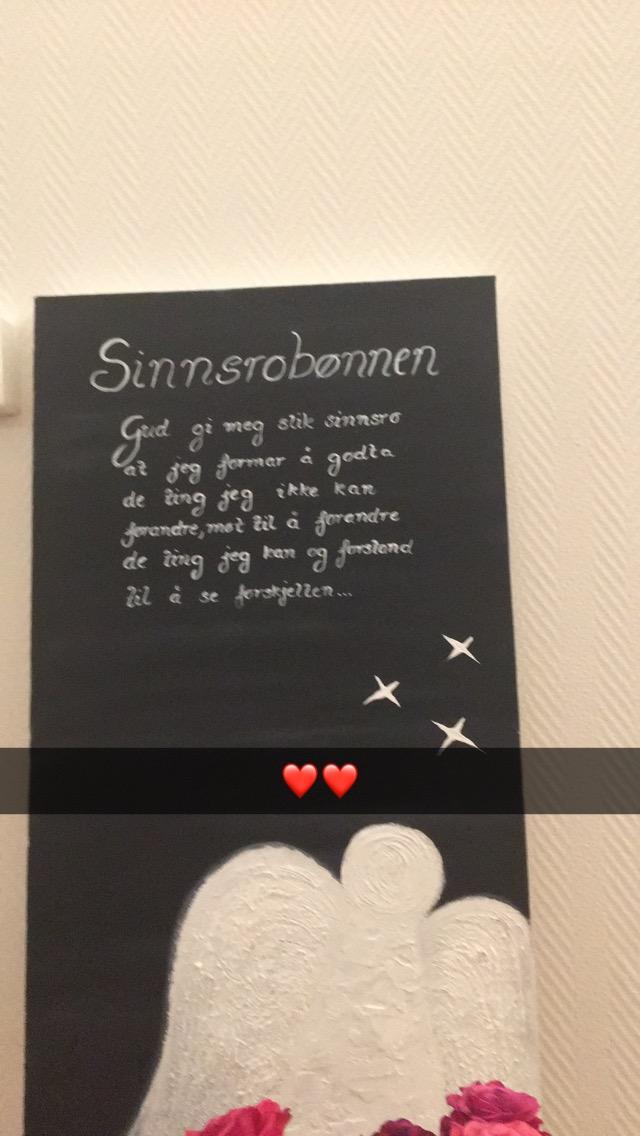 Sinnsrobønnen
Gud gi meg slik sinnsro
at jeg formar å godta
de ting jeg ikke kan
forandre, mot til å forandre
de ting jeg kan og forstand
til å se forskjellen...
❤️❤️